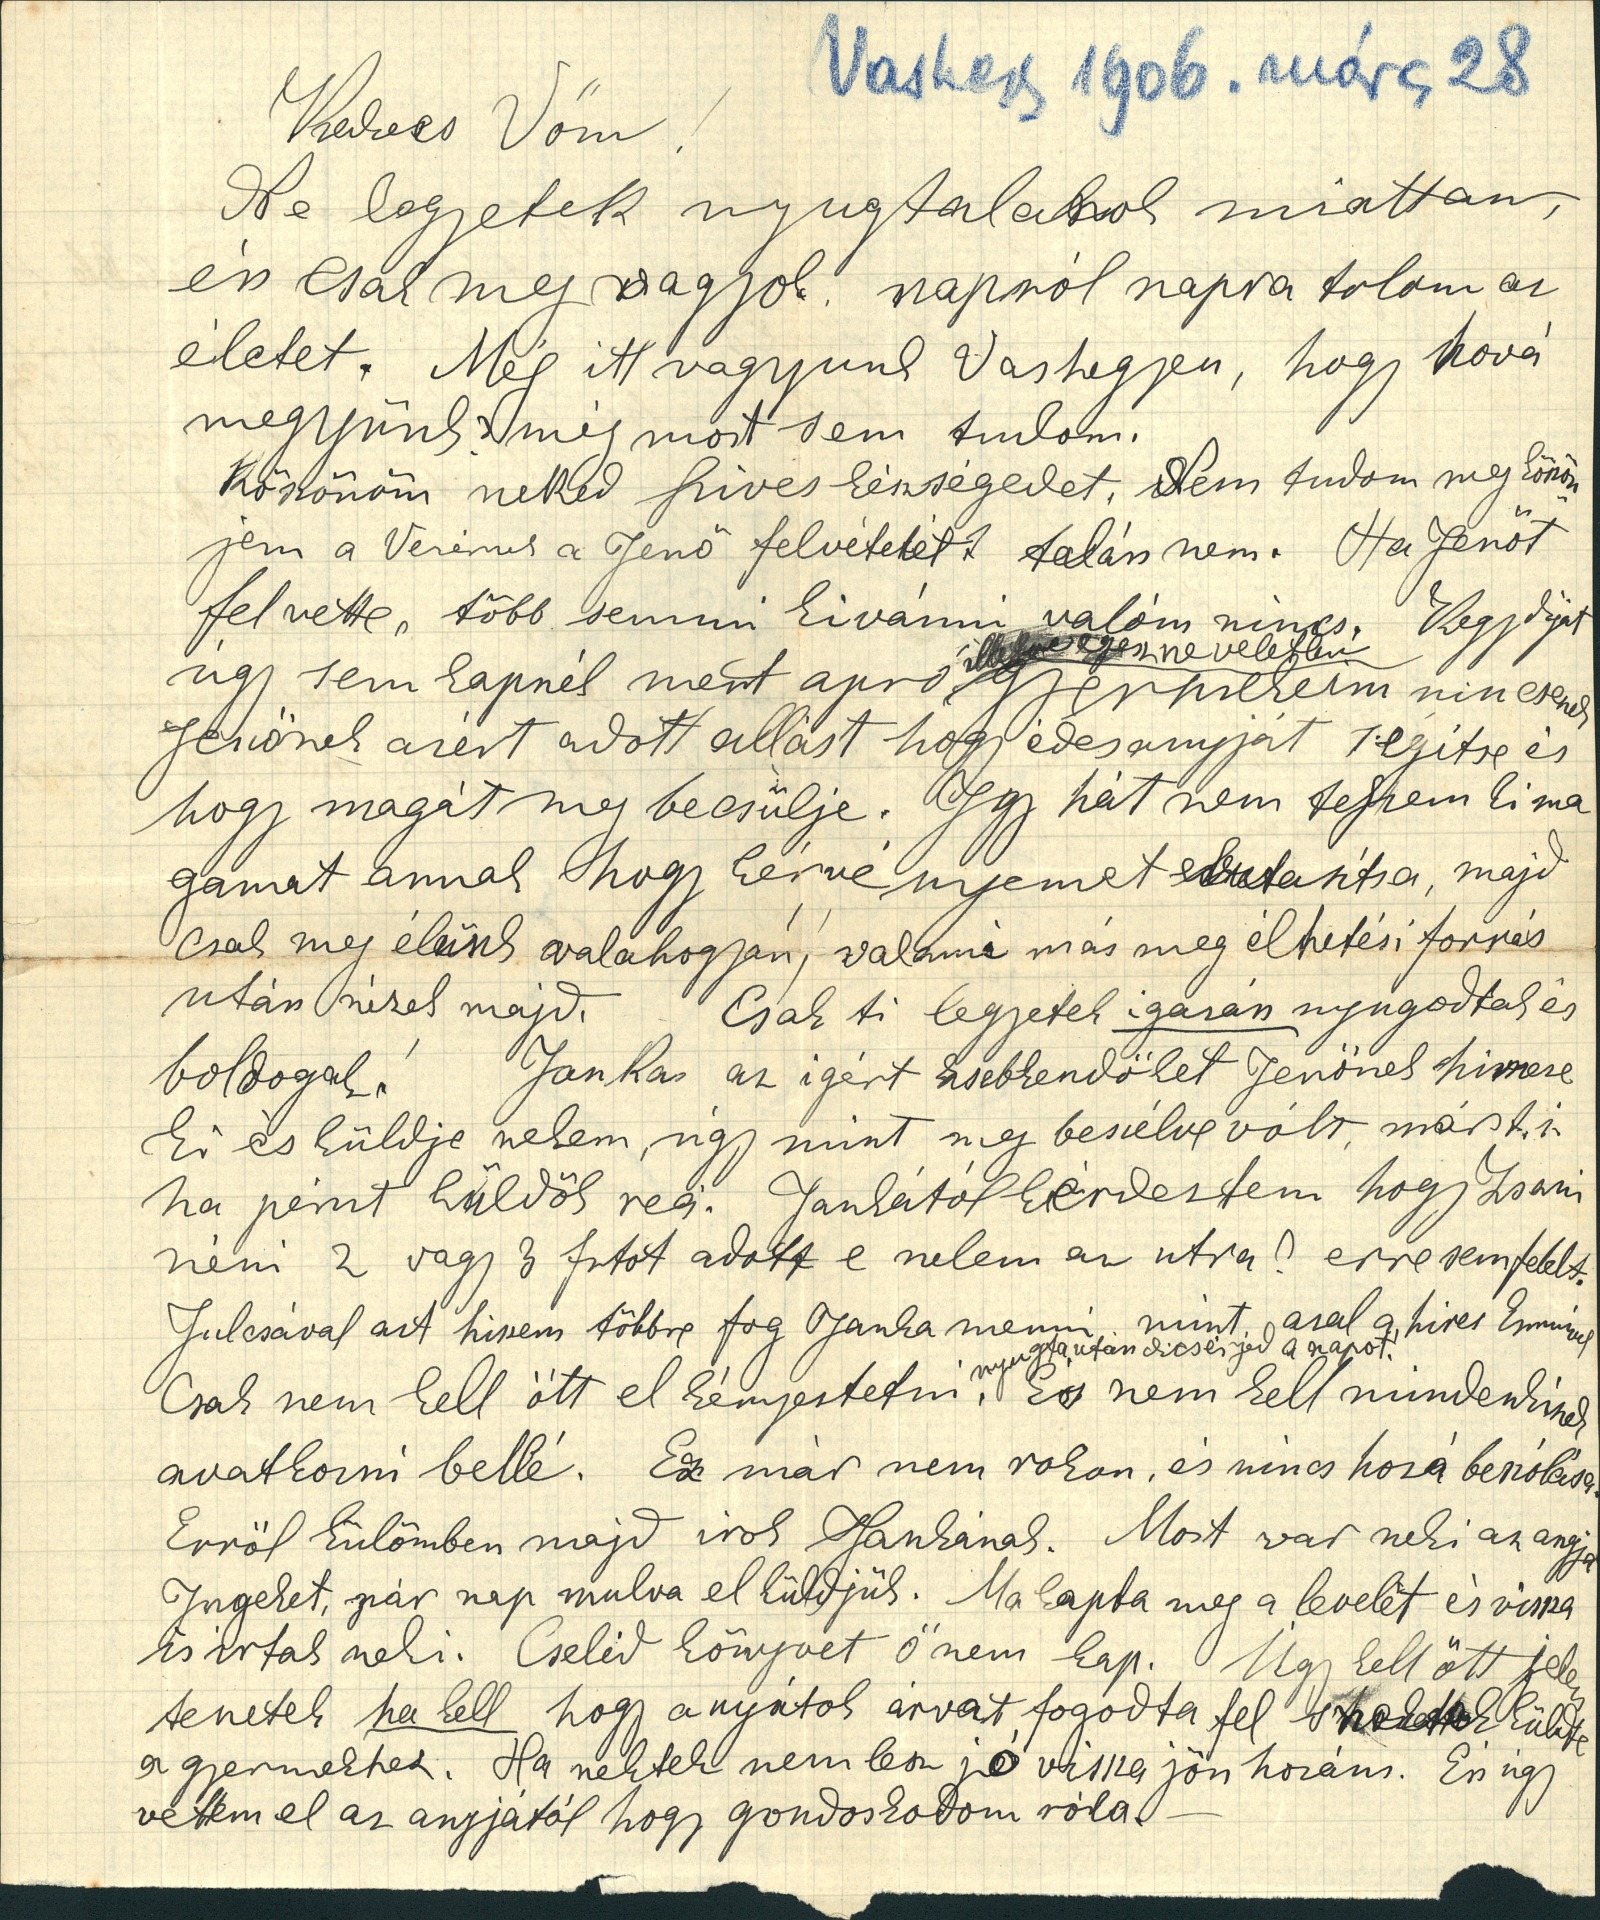 Vashegy 1906. márcz 28
Kedves Vőm!
Ne legyetek nyugtalanok miattam,
én csak meg vagyok. napról napra tolom az
életet. Még itt vagyunk Vashegyen, hogy hová
megyünk? még most sem tudom.
Köszönöm neked szives készségedet. Nem tudom meg köszön
jem a Vezérnek a Jenő felvételét? talán nem. Ha Jenőt
fel vette, több semmi kivánni valóm nincs. Kegydijat
úgy sem kapnék mert apró illetve egész neveletlen
gyermekeim nincsenek
Jenőnek azért adott állást hogy édesanyját segítse és
hogy magát meg becsülje. Igy hát nem teszem ki ma
gamat annak hogy kérvényemet elutasítsa, majd
csak meg élünk valahogyan, valami más meg élhetési forrás
után nézek majd. Csak ti legyetek igazán nyugodtak és
boldogak! Janka az igért zsebkendőket Jenőnek himezze
ki és küldje nekem, úgy mint meg beszélve vólt, mást is
ha pénzt küldök reá. Jankától kérdeztem hogy Zsani
néni 2 vagy 3 frtot adott e nekem az utra? erre sem felelt.
Julcsával azt hiszem többre fog Janka menni mint azal a hires
Csak nem kell ött el kényeztetni, nyugta után dicsérjed a napot! És nem kell mindenkinek
avatkozni bellé. Ez már nem rokon, és nincs hozá beszólása.
Erröl külömben majd irok Jankának. Most var neki az anyja
Ingeket, pár nap mulva el küldjük. Ma kapta meg a levelét és vissza
is irtak neki. Cseléd könyvet ő nem kap. Úgy kell ött jelen
tenetek ha kell hogy anyátok árvát fogodta fel s küldte
a gyermekhez. Ha nektek nem lesz jó vissza jön hozám. Én úgy
vettem el az anyjától hogy gondoskodom róla.—